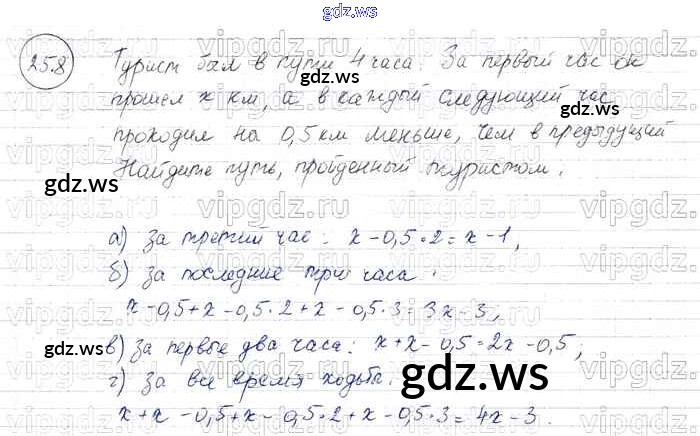 gdz.ws
25.8
Турист был в пути 4 часа. За первый час он
прошел x км, а в каждый следующий час
проходил на 0,5 км меньше, чем в предыдущий
Найдите путь, пройденный туристом.
gdz.ws
gdz.ws
gdz.ws
а) за третий час: x - 0,5 · 2 = x - 1,
б) за последние три часа:
x - 0,5 + x - 0,5 · 2 + x - 0,5 · 3 = 3x - 3;
в) за первые два часа: x + x - 0,5 = 2x - 0,5;
г) за все время ходьбы:
x + x - 0,5 + x - 0,5 · 2 + x - 0,5 · 3 = 4x - 3.
gdz.ws
gdz.ws
gdz.ws
vipgdz.ru